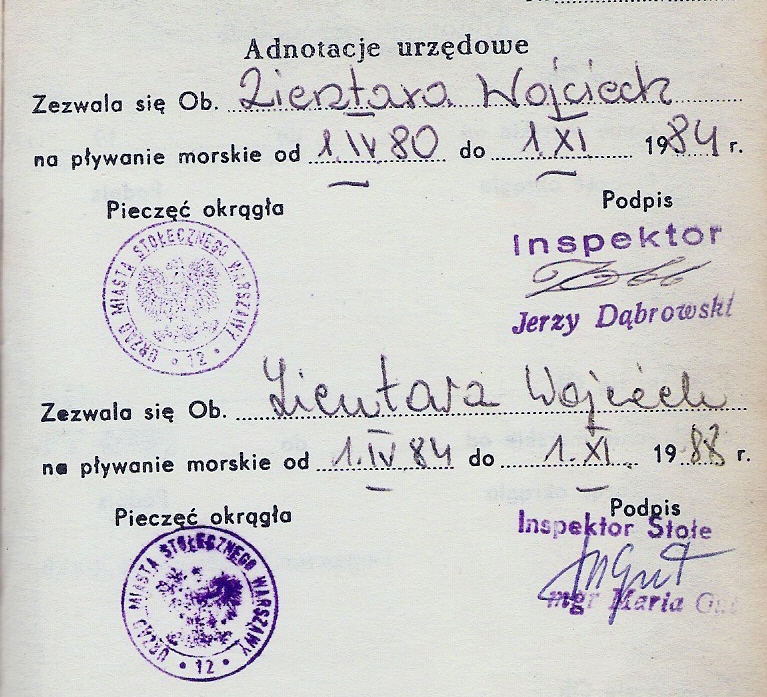 Adnotacje urzędowe
Zezwala się Ob. Zientara Wojciech
na pływanie morskie od 1.IV 80 do 1.XI. 1984 r.
Pieczęć okrągła Podpis
URZĄD MIASTA STOŁECZNEGO WARSZAWY • 12 •
Inspektor
Jerzy Dąbrowski
Zezwala się Ob. Zientara Wojciech
na pływanie morskie od 1.IV 84 do 1.XI. 1988 r.
Pieczęć okrągła Podpis
URZĄD MIASTA STOŁECZNEGO WARSZAWY • 12 •
Inspektor Stołe
mgr Maria Gut